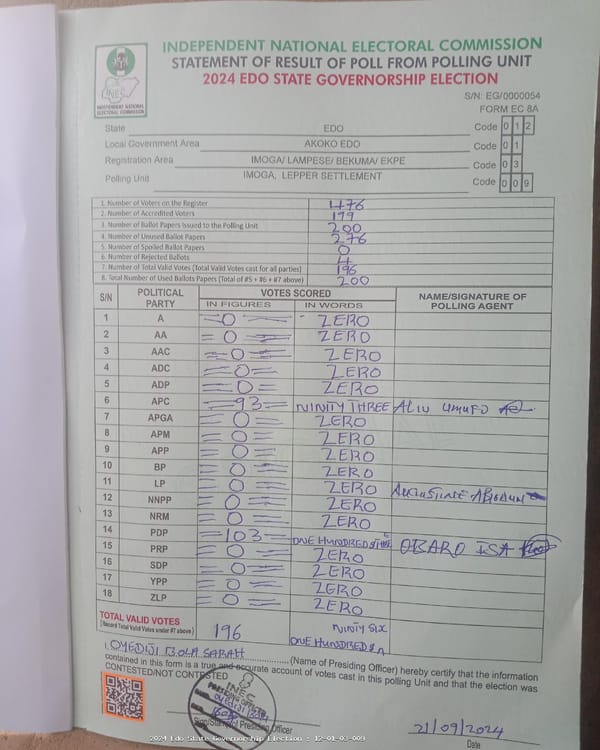 INDEPENDENT NATIONAL ELECTORAL COMMISSION
STATEMENT OF RESULT OF POLL FROM POLLING UNIT
2024 EDO STATE GOVERNORSHIP ELECTION
INEC
INDEPENDENT NATIONAL ELECTORAL COMMISSION
S/N: EG/0000054
FORM EC 8A
State EDO Code 0 1 2
Local Government Area AKOKO EDO Code 0 1
Registration Area IMOGA/ LAMPESE/ BEKUMA/ EKPE Code 0 3
Polling Unit IMOGA, LEPPER SETTLEMENT Code 0 0 9
1. Number of Voters on the Register 476
2. Number of Accredited Voters 199
3. Number of Ballot Papers Issued to the Polling Unit 200
4. Number of Unused Ballot Papers 276
5. Number of Spoiled Ballot Papers 0
6. Number of Rejected Ballots 4
7. Number of Total Valid Votes (Total Valid Votes cast for all parties) 196
8. Total Number of Used Ballots Papers (Total of #5 + #6 + #7 above) 200
S/N POLITICAL PARTY VOTES SCORED IN FIGURES IN WORDS NAME/SIGNATURE OF POLLING AGENT
1 A 0 ZERO
2 AA 0 ZERO
3 AAC 0 ZERO
4 ADC 0 ZERO
5 ADP 0 ZERO
6 APC 93 NINITY THREE ALIU UMUFO
7 APGA 0 ZERO
8 APM 0 ZERO
9 APP 0 ZERO
10 BP 0 ZERO
11 LP 0 ZERO
12 NNPP 0 ZERO
13 NRM 0 ZERO
14 PDP 103 ONE HUNDRED & THREE OBARO ISA
15 PRP 0 ZERO
16 SDP 0 ZERO
17 YPP 0 ZERO
18 ZLP 0 ZERO
TOTAL VALID VOTES
(Record Total Valid Votes under #7 above) 196 NINITY SIX
ONE HUNDRED &
I, OYEDIJI BOLA SARAH (Name of Presiding Officer) hereby certify that the information
contained in this form is a true and accurate account of votes cast in this polling Unit and that the election was
CONTESTED/NOT CONTESTED
INEC
Sign/Stamp of Presiding Officer
21/09/2024
Date
2024 Edo State Governorship Election - 12-01-03-009